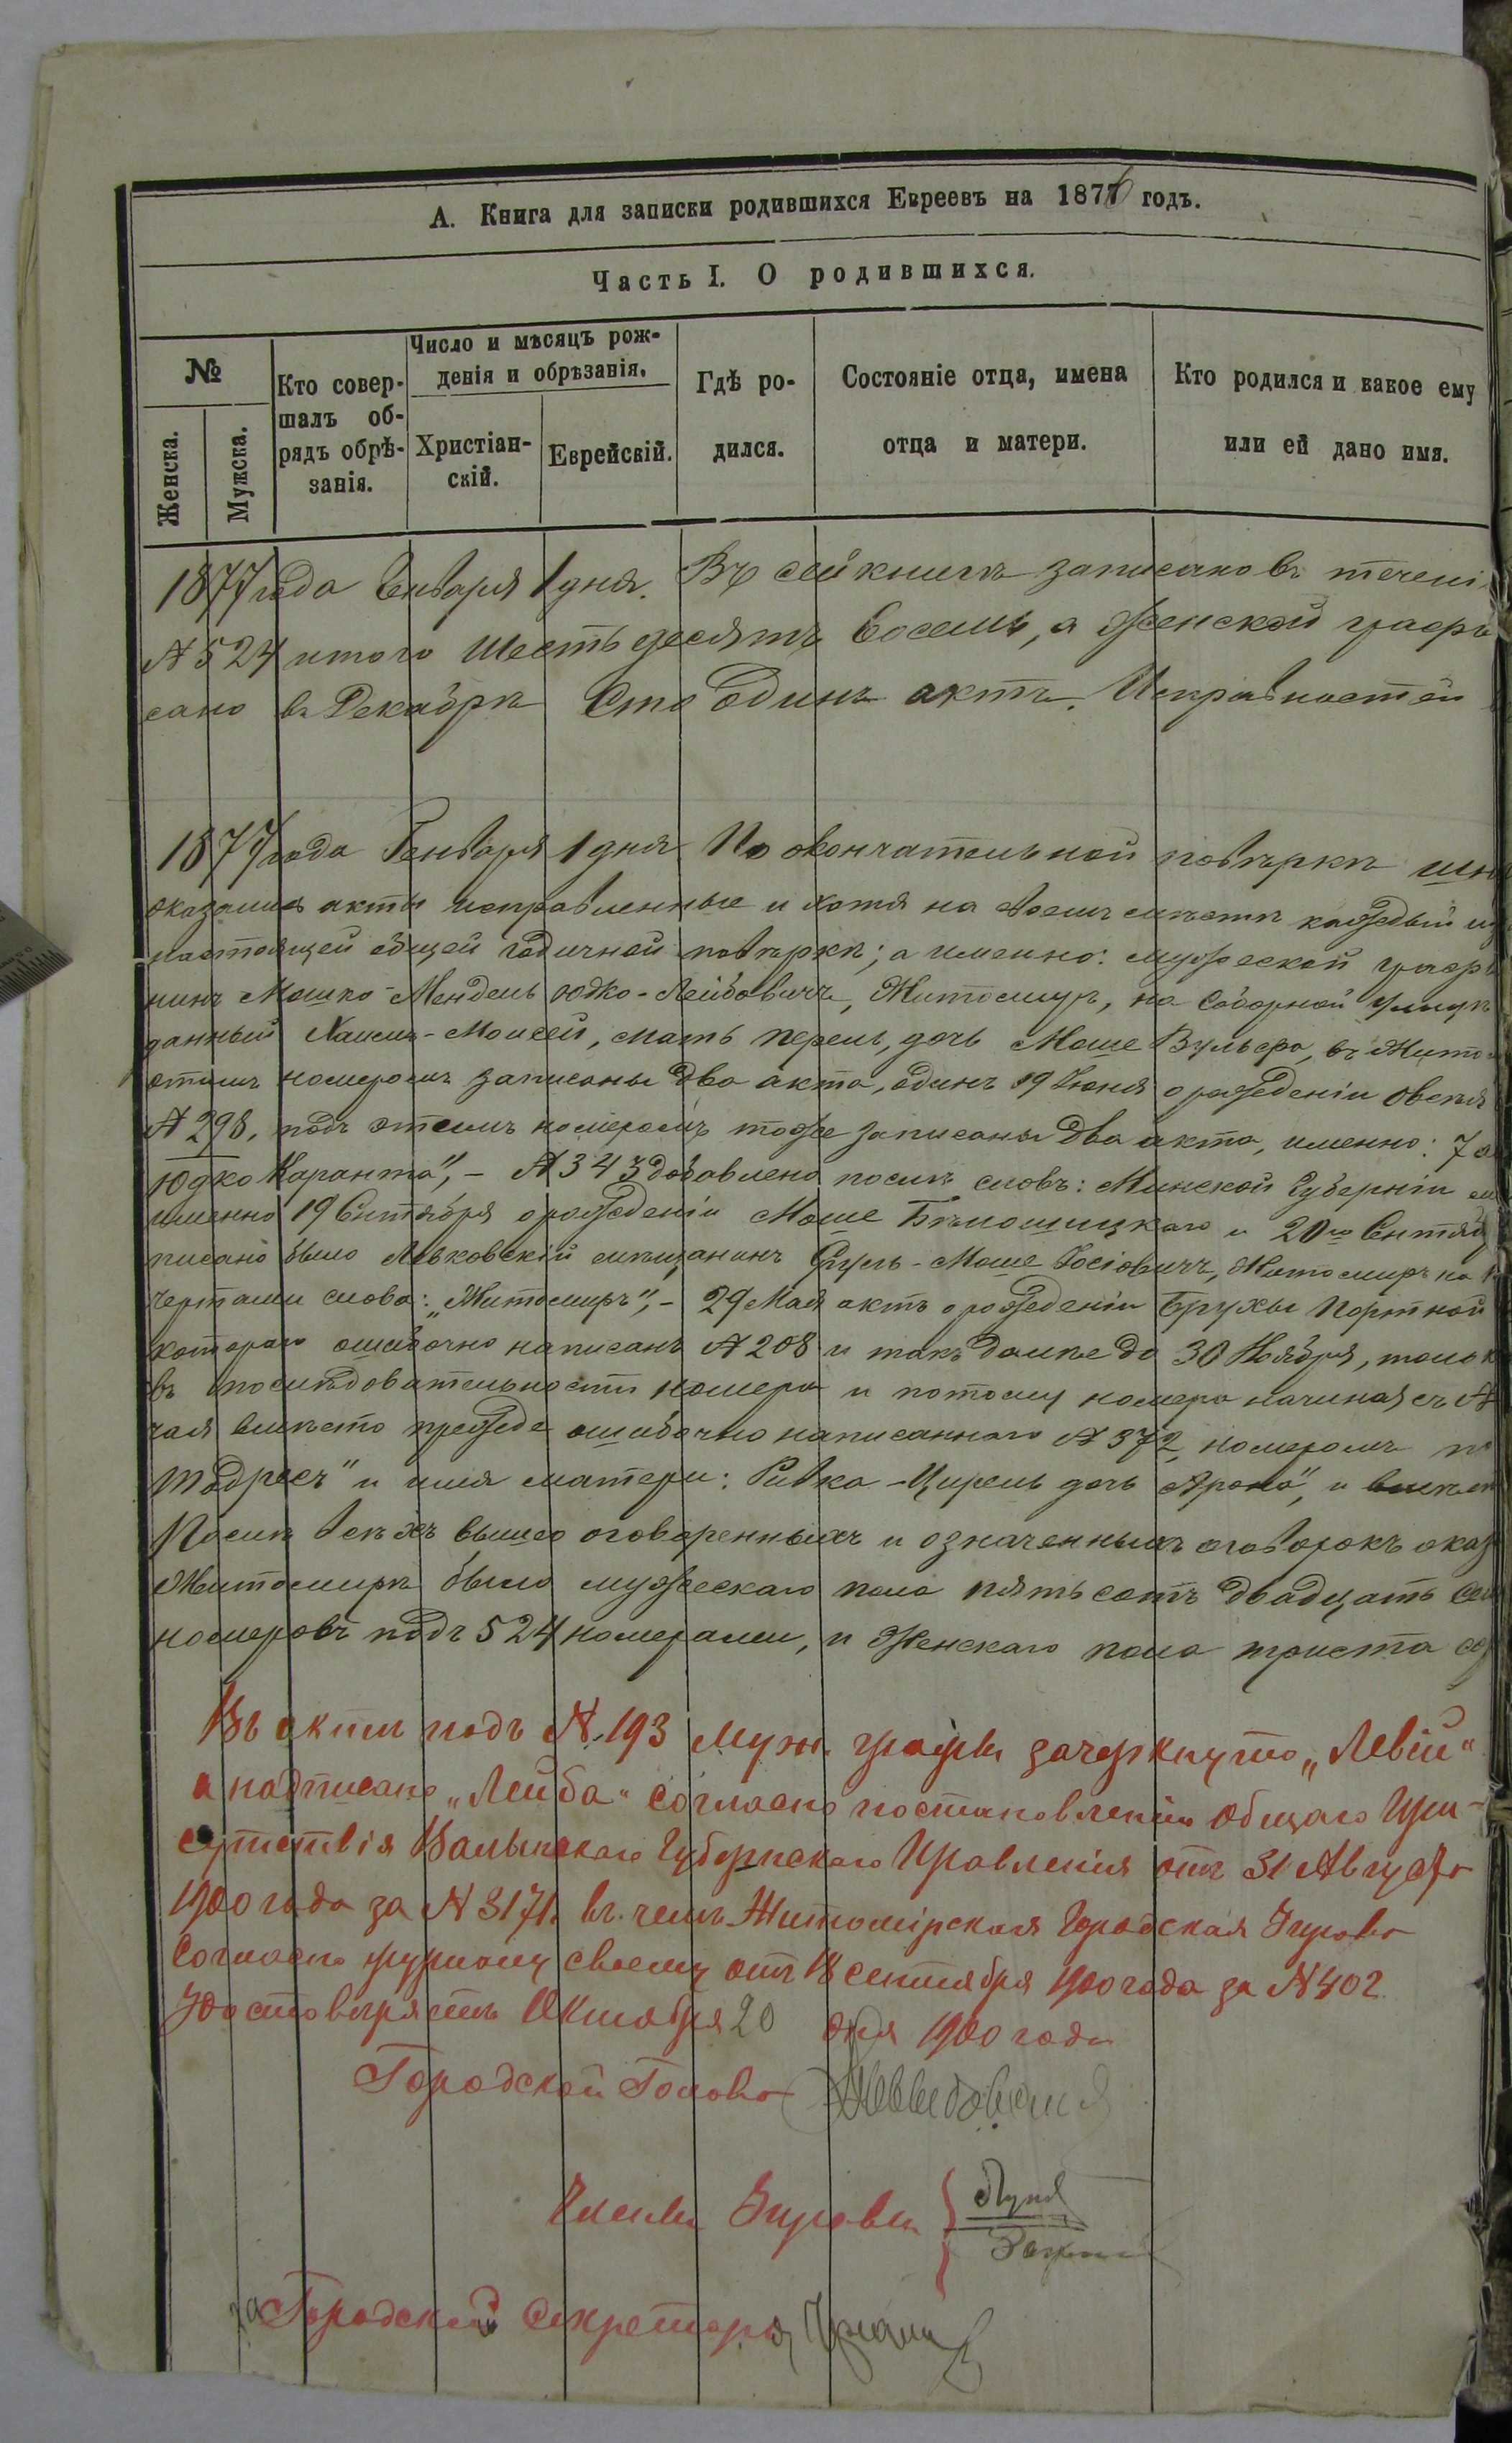 А. Книга для записки родившихся Евреевъ на 1876 годъ.
Часть I. О родившихся.
№
Женска.
Мужска.
Кто совер-
шалъ об-
рядъ обрѣ-
занія.
Число и мѣсяцъ рож-
денія и обрѣзанія.
Христіан-
скій.
Еврейскій.
Гдѣ ро-
дился.
Состояніе отца, имена
отца и матери.
Кто родился и какое ему
или ей дано имя.
1877 года Января 1 дня. Въ сей книгѣ записано въ теченi
№ 524 итого Шестьдесятъ Восемь, а Женской граф
сано въ Декабрѣ Сто Одинъ актъ. Исправностей
1877 года Генваря 1 дня По окончательной повѣркѣ
оказались акты исправленные и хотя на своемъ мѣстѣ каждый
настоящей общей годичной повѣрки; а именно: мужеской граф
нинъ Мошко-Мендель Юдко-Лейбовичъ, Житомиръ, на Соборной улицѣ
данный Хаимъ-Моисей, мать Перель, дочь Моше Вульфа, въ Жито
этимъ номеромъ записаны два акта, одинъ 19 Іюня о рожденіи Овсея
№ 298, подъ этимъ номеромъ тоже записаны два акта, именно: 7
Юдко Каранта", – № 343 добавлено послѣ словъ: Минской Губерніи
именно 19 Сентября о рожденіи Моше Бѣлошицкаго и 20го Сентяб
писано было Левковскій мѣщанинъ Сруль-Моше Іосіовичъ, Житомиръ на
чертами слова: „Житомиръ", – 29 Мая актъ о рожденіи Брухы Портной
котораго ошибочно написанъ № 208 и такъ далѣе до 30 Ноября, только
въ послѣдовательности номера и потому номера начиная съ №
чая вмѣсто прежде ошибочно написаннаго № 372, номеромъ
Тодресъ" и имя матери: Ривка-Цирель дочь Арона", и
Послѣ всѣхъ вышео оговоренныхъ и означенныхъ оговорокъ оказ
Житомирѣ было мужескаго пола пятьсотъ двадцать
номеровъ подъ 524 номерами, и Женскаго пола триста
Въ актѣ подъ № 193 муж. графы зачеркнуто „Левій"
а надписано „Лейба" согласно постановленію Общаго При-
сутствія Волынскаго Губернскаго Правленія отъ 31 Августа
1900 года за № 3171. въ чемъ Житомірская Городская Управа
согласно журналу своему отъ 18 сентября 1900 года за № 402.
Удостовѣряетъ Октября 20 дня 1900 года
Городской Голова
Члены Управы
за Городской Секретарь